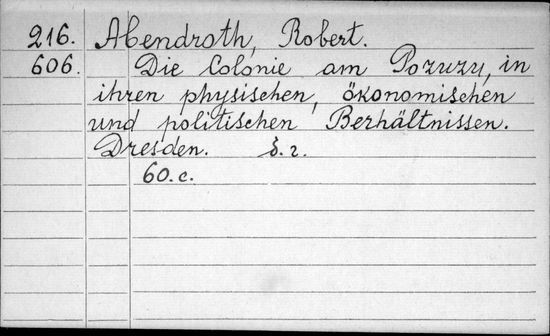 216. Abendroth, Robert.
606. Die Colonie am Pozuzu, in
ihren physischen, ökonomischen
und politischen Berhältnissen.
Dresden. б. г.
60. с.